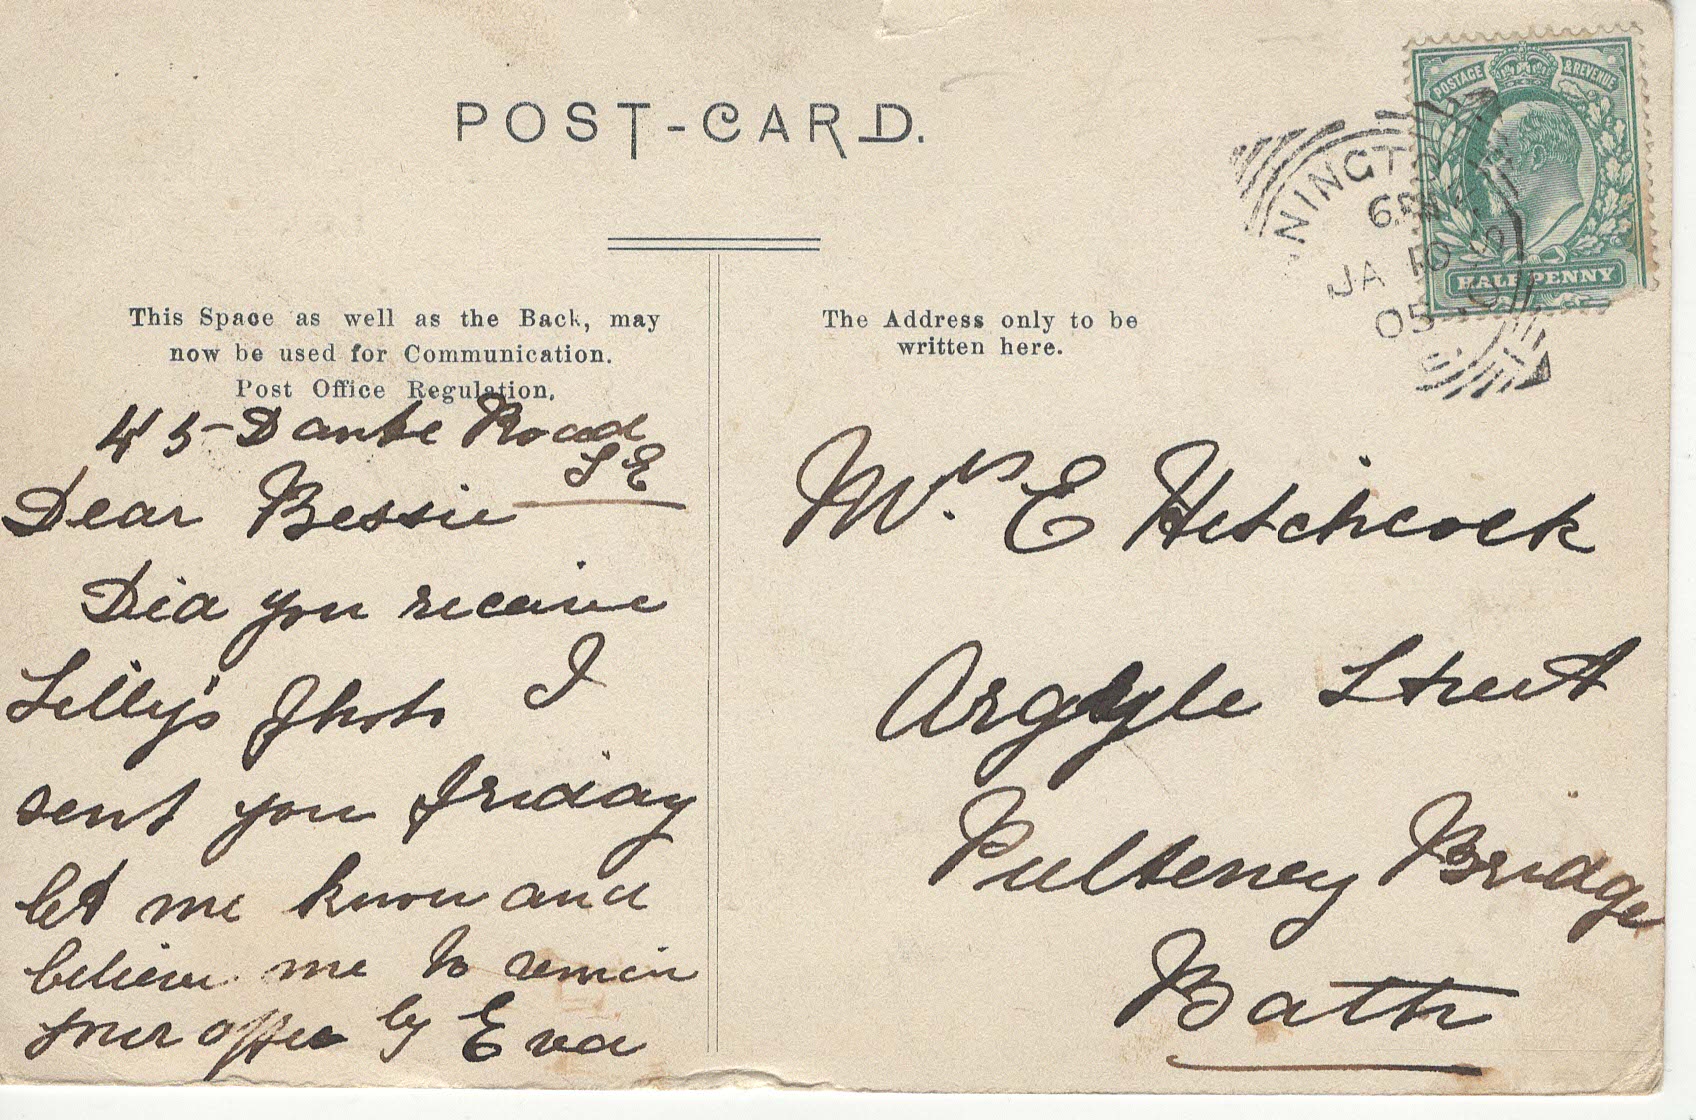 POST-CARD.
POSTAGE & REVENUE
NINGTO
6
JA 10
05
S
HALF PENNY
This Space as well as the Back, may
now be used for Communication.
Post Office Regulation.
The Address only to be
written here.
45 Dante Road
S E
Dear Bessie
Did you receive
Lilly's Photo I
sent you friday
let me know and
believe me to remin
your affec ly Eva
Mrs. E Hitchcock
Argyle Street
Pulteney Bridge
Bath